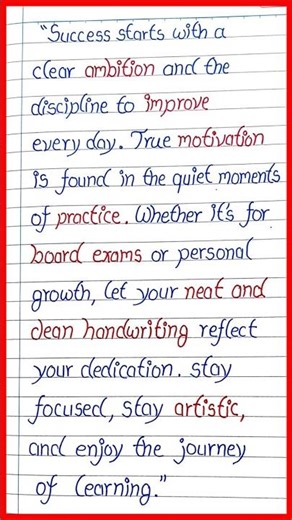 "Success starts with a
clear ambition and the
discipline to improve
every day. True motivation
is found in the quiet moments
of practice. Whether it's for
board exams or personal
growth, let your neat and
clean handwriting reflect
your dedication. Stay
focused, stay artistic,
and enjoy the journey
of learning."